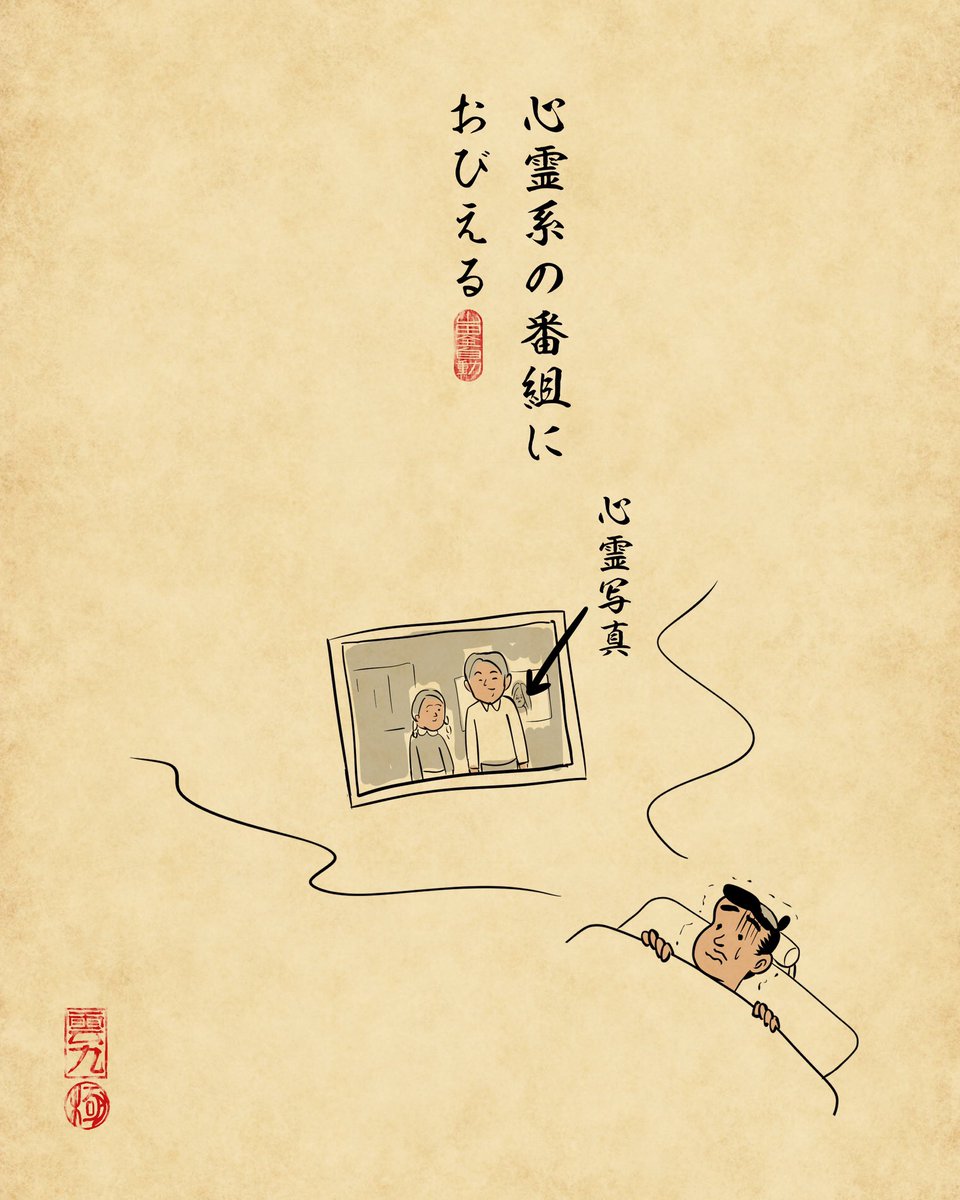 心霊系の番組に
おびえる
心霊写真